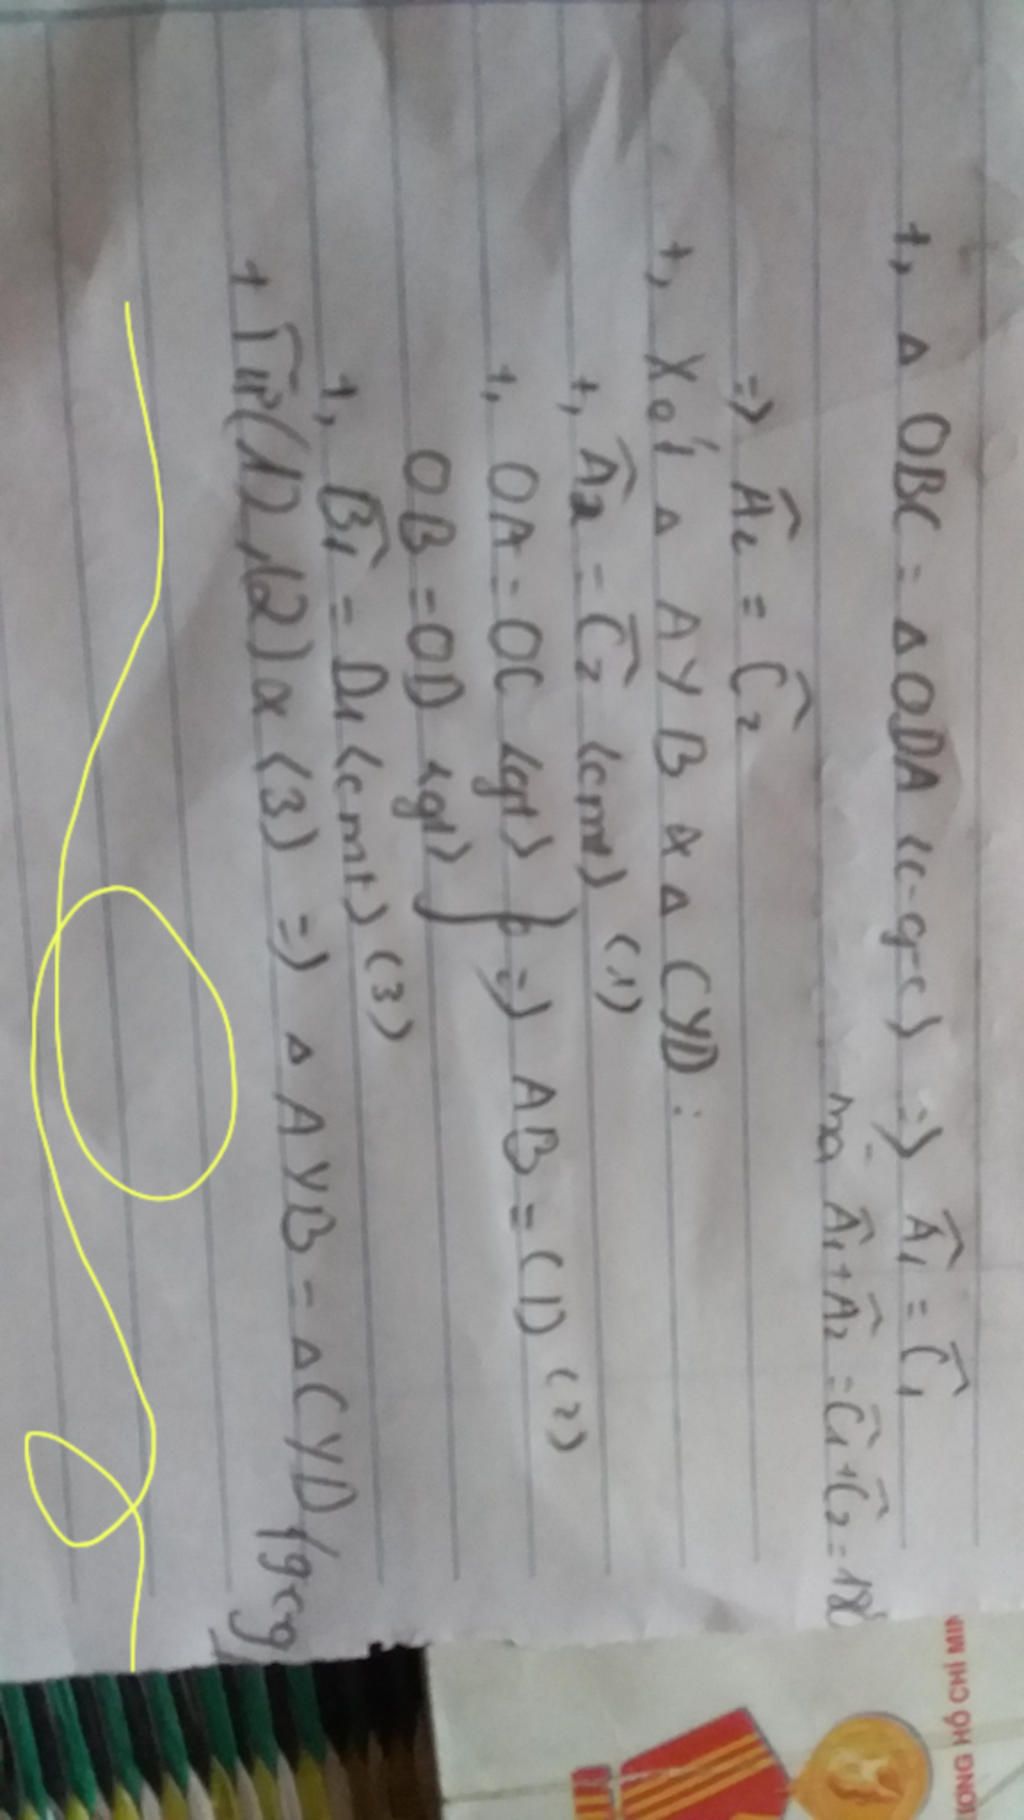 +, Δ OBC = Δ ODA (c-g-c) => Â1 = Ĉ1
mà Â1 + Â2 = Ĉ1 + Ĉ2 = 18
=> Â2 = Ĉ2
+, Xét Δ AYB & Δ CYD :
+, Â2 = Ĉ2 (cmt) (1)
+, OA = OC (gt)
OB = OD (gt) } => AB = CD (2)
+, B̂1 = D1 (cmt) (3)
+ Từ (1), (2) & (3) => Δ AYB = Δ CYD (gcg)
ƯƠNG HỒ CHÍ MIN